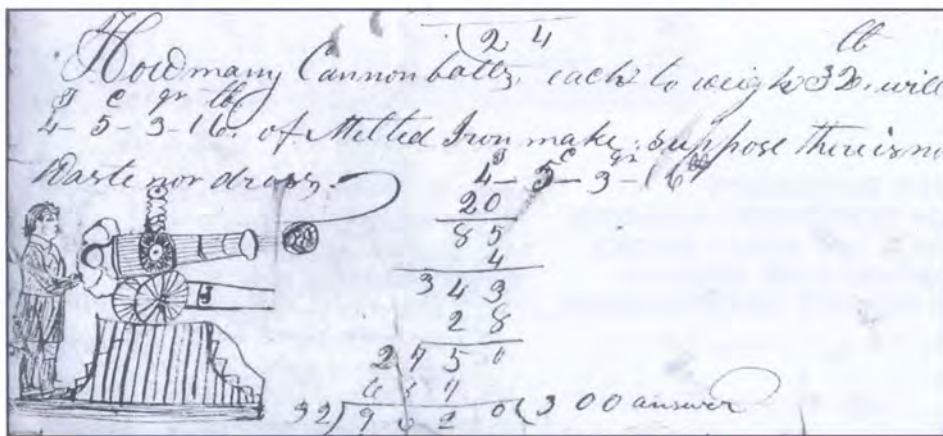 (2 4
lb
How many Cannon balls, each to weigh 32, will
T C qr lb
4 - 5 - 3 - 16. of Melted Iron make. suppose there is no
Waste nor dross.-
T C qr lb
4 - 5 - 3 - 16
20
8 5
4
3 4 3
2 8
2 7 5 0
6 8 7
32) 9 6 2 0 ( 3 0 0 answer